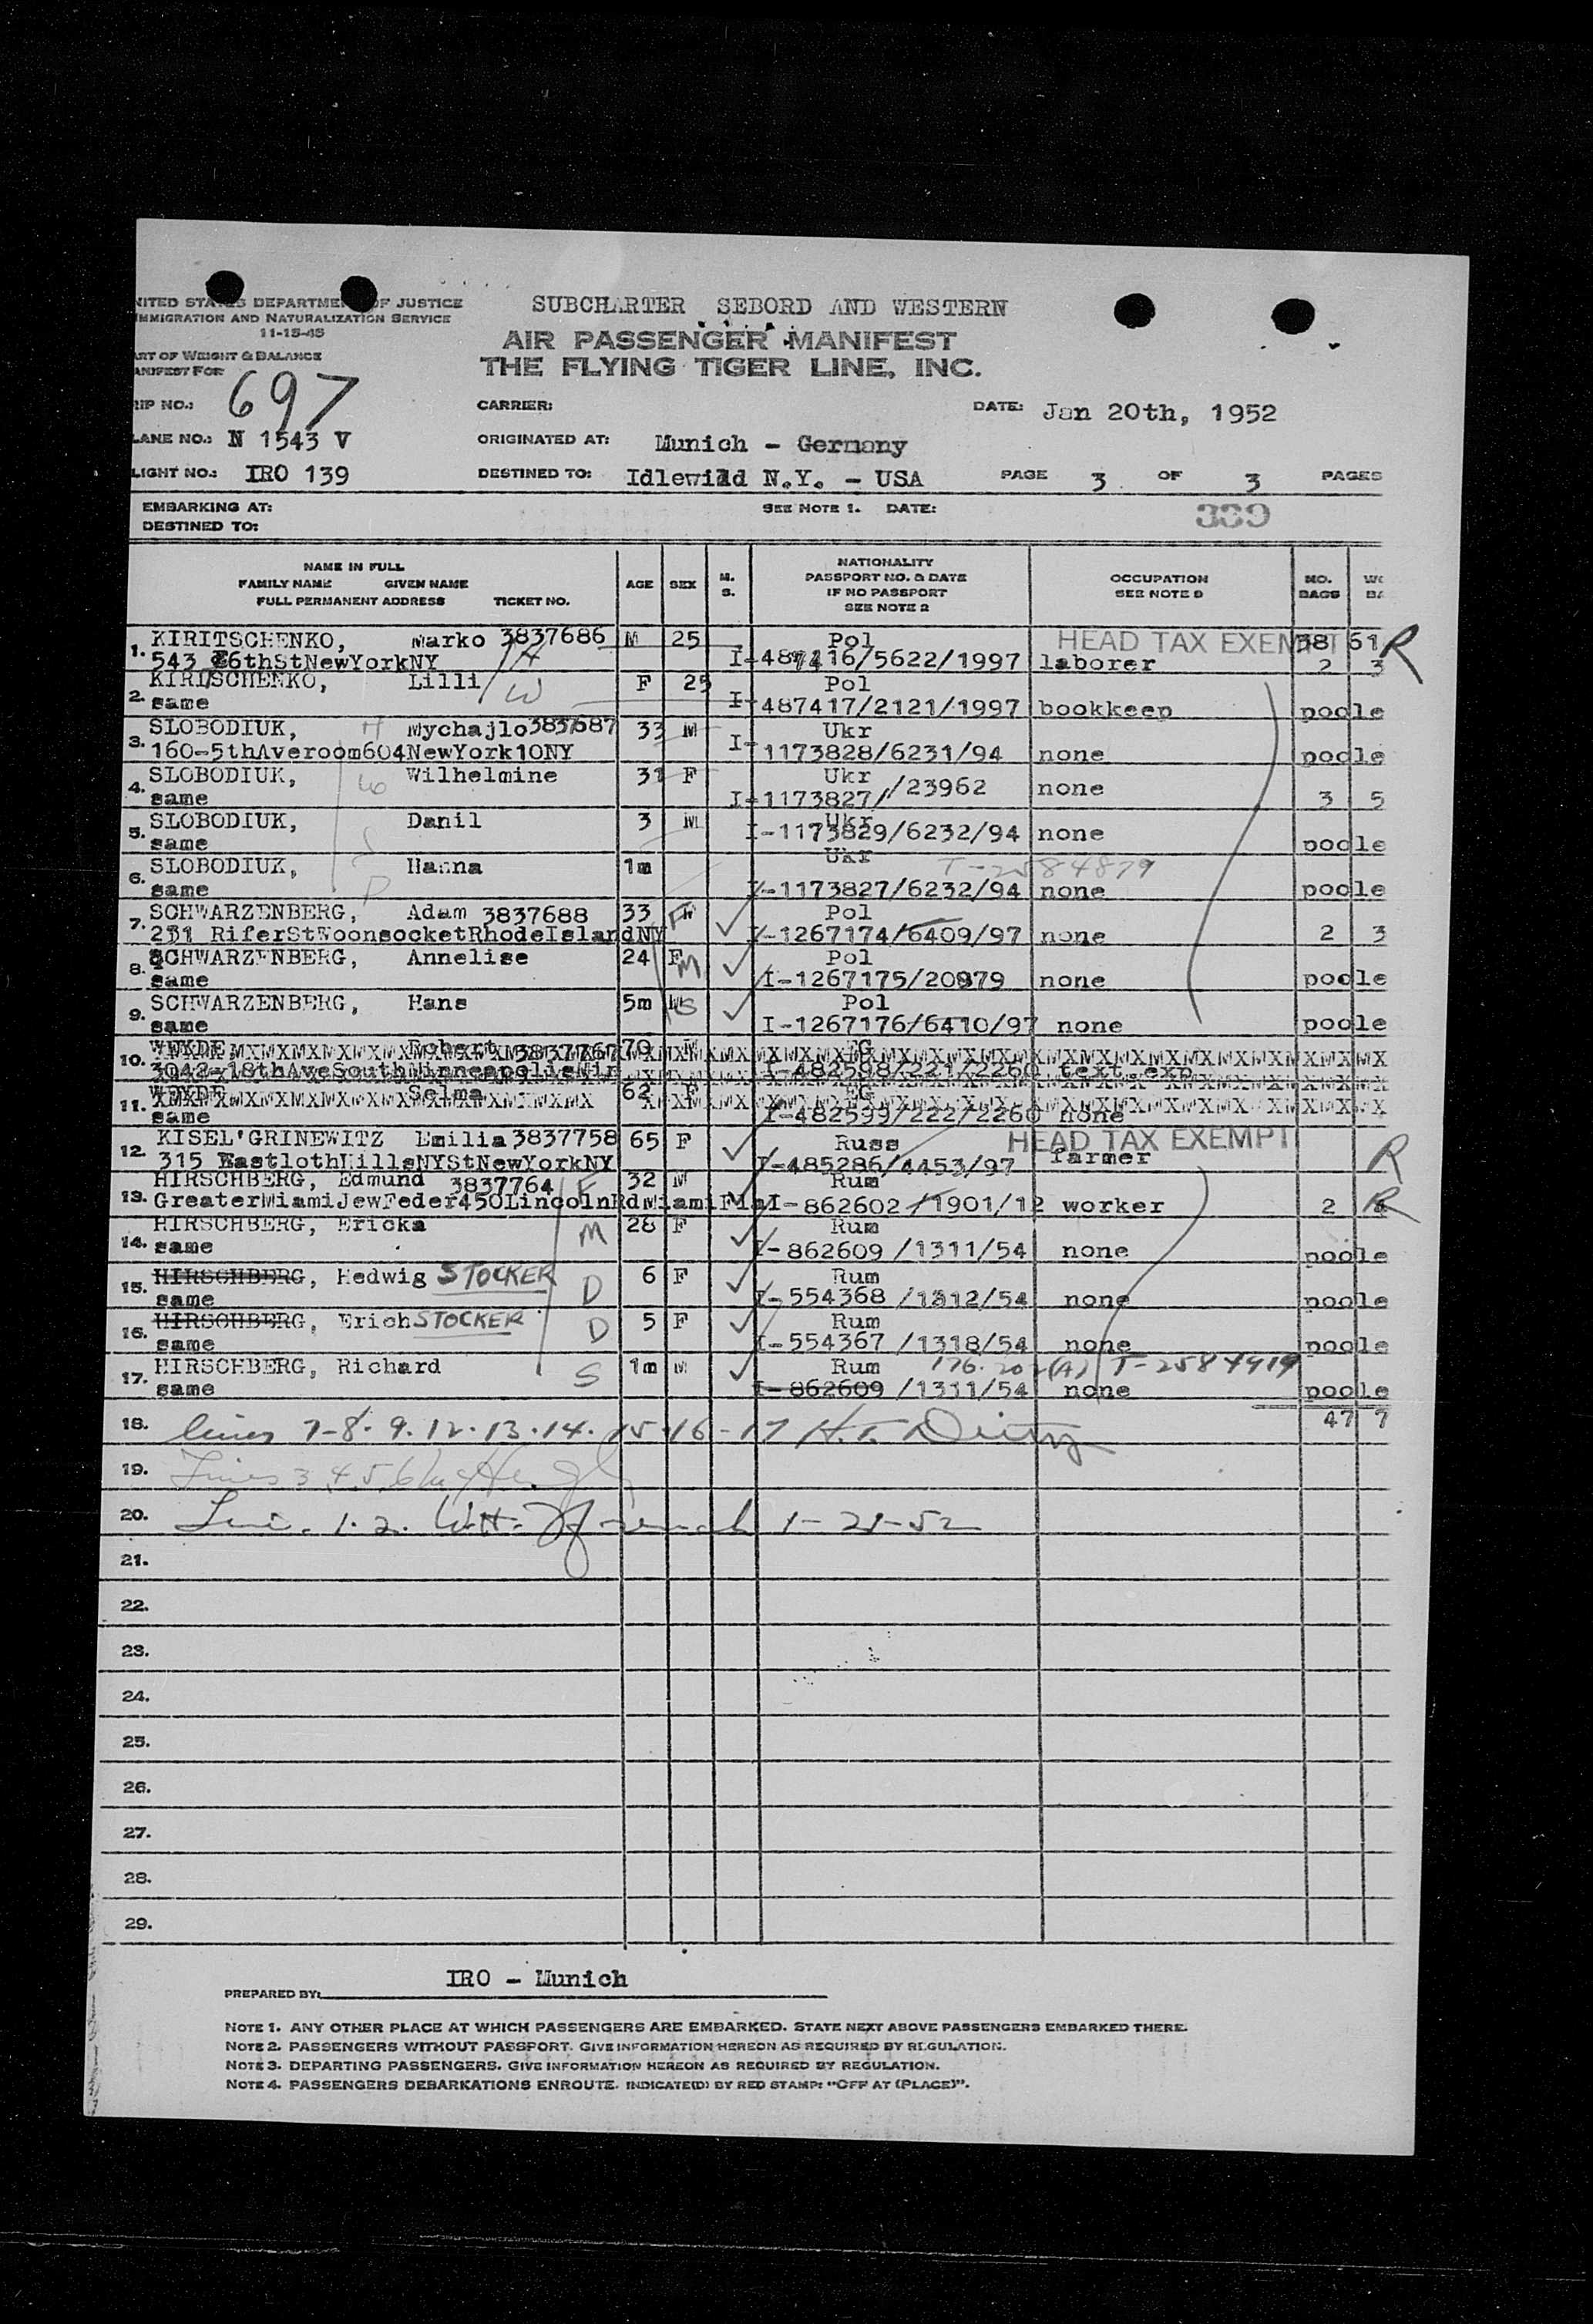 NITED STATES DEPARTMENT OF JUSTICE
MMIGRATION AND NATURALIZATION SERVICE
11-15-45
ART OF WEIGHT & BALANCE
ANIFEST FOR
SUBCHARTER SEBORD AND WESTERN
AIR PASSENGER MANIFEST
THE FLYING TIGER LINE, INC.
RIP NO.: 697 CARRIER: DATE: Jan 20th, 1952
LANE NO.: N 1543 V ORIGINATED AT: Munich - Germany
LIGHT NO.: IRO 139 DESTINED TO: Idlewild N.Y. - USA PAGE 3 OF 3 PAGES
EMBARKING AT: SEE NOTE 1. DATE: 339
DESTINED TO:
NAME IN FULL
FAMILY NAME GIVEN NAME
FULL PERMANENT ADDRESS TICKET NO.
AGE SEX M. S.
NATIONALITY
PASSPORT NO. & DATE
IF NO PASSPORT
SEE NOTE 2
OCCUPATION
SEE NOTE 9
NO.
BAGS
1. KIRITSCHENKO, Marko 3837686 M 25 Pol HEAD TAX EXEMPT 38 61 R
543 E6thStNewYorkNY H I-487416/5622/1997 laborer 2 3
2. KIRITSCHENKO, Lilli W F 25 Pol
same I-487417/2121/1997 bookkeep poole
3. SLOBODIUK, H Mychajlo3837687 33 M Ukr
160-5thAveroom604NewYork10NY I-1173828/6231/94 none poole
4. SLOBODIUK, W Wilhelmine 31 F Ukr
same I-1173827/ /23962 none 3 5
5. SLOBODIUK, S Danil 3 M Ukr
same I-1173829/6232/94 none poole
6. SLOBODIUK, D Hanna 1m Ukr T-2584879
same I-1173827/6232/94 none poole
7. SCHWARZENBERG, Adam 3837688 33 M F Pol
231 RiferStWoonsocketRhodeIslandNY I-1267174/6409/97 none 2 3
8. SCHWARZENBERG, Annelise 24 F M Pol
same I-1267175/20979 none poole
9. SCHWARZENBERG, Hans 5m M S Pol
same I-1267176/6410/97 none poole
10. WEYDE Robert 3837767 70 M EG
3042-18thAveSouthMinneapolisMin I-482598/221/2260 text.exp
11. WEYDE Selma 62 F EG
same I-482599/222/2260 none
12. KISEL'GRINEWITZ Emilia 3837758 65 F Russ HEAD TAX EXEMPT
315 EastlothHillsNYStNewYorkNY I-485286/4453/97 farmer R
13. HIRSCHBERG, Edmund 3837764 F 32 M Rum
GreaterMiamiJewFeder450LincolnRdMiamiFla I-862602/1901/12 worker 2 R
14. HIRSCHBERG, Ericka M 28 F Rum
same I-862609 /1311/54 none poole
15. HIRSCHBERG, Hedwig STOCKER D 6 F Rum
same I-554368 /1312/54 none poole
16. HIRSCHBERG, Erich STOCKER D 5 F Rum
same I-554367 /1318/54 none poole
17. HIRSCHBERG, Richard S 1m M Rum 176.202(A) T-2584919
same I-862609 /1311/54 none poole
18. lines 7-8.9.12.13.14.15.16-17 H.T. 47 7
19. Lines 3 4 5 6
20. Line. 1.2. W.H. 1-21-52
21.
22.
23.
24.
25.
26.
27.
28.
29.
PREPARED BY: IRO - Munich
NOTE 1. ANY OTHER PLACE AT WHICH PASSENGERS ARE EMBARKED. STATE NEXT ABOVE PASSENGERS EMBARKED THERE.
NOTE 2. PASSENGERS WITHOUT PASSPORT. GIVE INFORMATION HEREON AS REQUIRED BY REGULATION.
NOTE 3. DEPARTING PASSENGERS. GIVE INFORMATION HEREON AS REQUIRED BY REGULATION.
NOTE 4. PASSENGERS DEBARKATIONS ENROUTE. INDICATE(D) BY RED STAMP: "OFF AT (PLACE)".